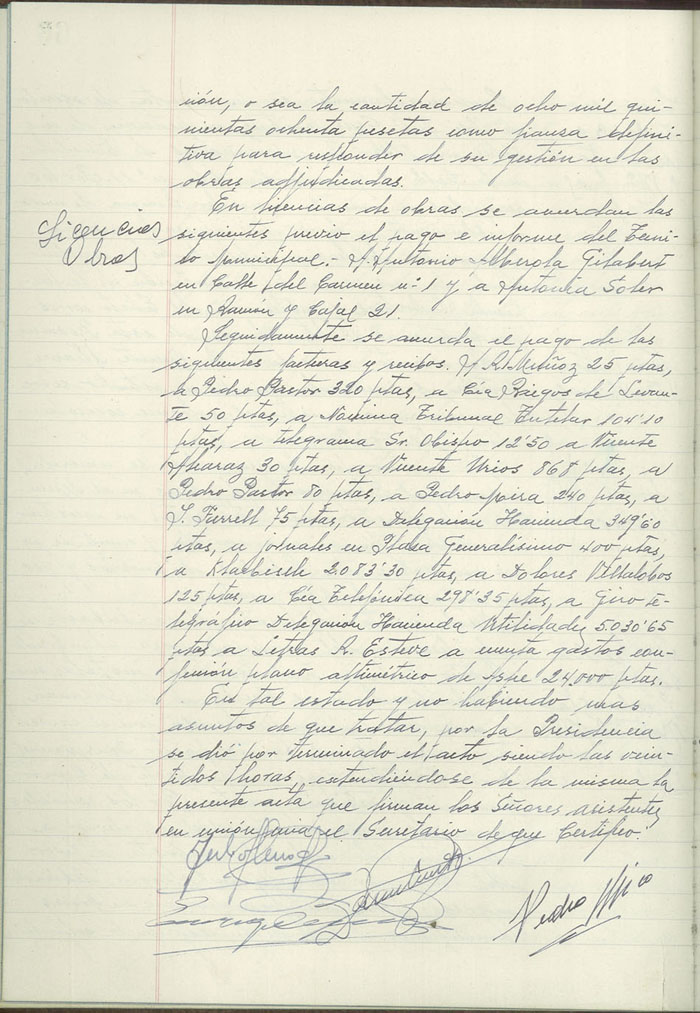 nión, o sea la cantidad de ocho mil qui-
nientas ochenta pesetas como fianza defini-
tiva para responder de su gestión en las
obras adjudicadas.
Licencias
Obras
En licencias de obras se acuerdan las
siguientes previo el pago e informe del Técni-
co Municipal.- A Antonio Alberola Gilabert
en Calle del Carmen nº 1 y a Antonia Soler
en Ramón y Cajal 21.
Seguidamente se acuerda el pago de las
siguientes facturas y recibos. A R. Muñoz 25 ptas,
a Pedro Pastor 320 ptas, a Cía Riegos de Levan-
te 50 ptas, a Nómina Tribunal Tutelar 104'10
ptas, a telegrama Sr. Obispo 12'50 a Vicente
Alcaraz 30 ptas, a Vicente Urios 868 ptas, a
Pedro Pastor 80 ptas, a Pedro Mira 240 ptas, a
J. Ferrell 75 ptas, a Delegación Hacienda 349'60
ptas, a jornales en Plaza Generalísimo 400 ptas,
a 2.083'30 ptas, a Dolores Villalobos
125 ptas, a Cía Telefónica 298'35 ptas, a Giro te-
legráfico Delegación Hacienda Utilidades 5030'65
ptas a Letras R. Esteve a cuenta gastos con-
fección plano altimétrico de Aspe 24.000 ptas.
En tal estado y no habiendo mas
asuntos de que tratar, por la Presidencia
se dió por terminado el acto siendo las vein-
tidos horas, extendiéndose de la misma la
presente acta que firman los Señores asistentes
en unión mia el Secretario de que Certifico.
Pedro Mira